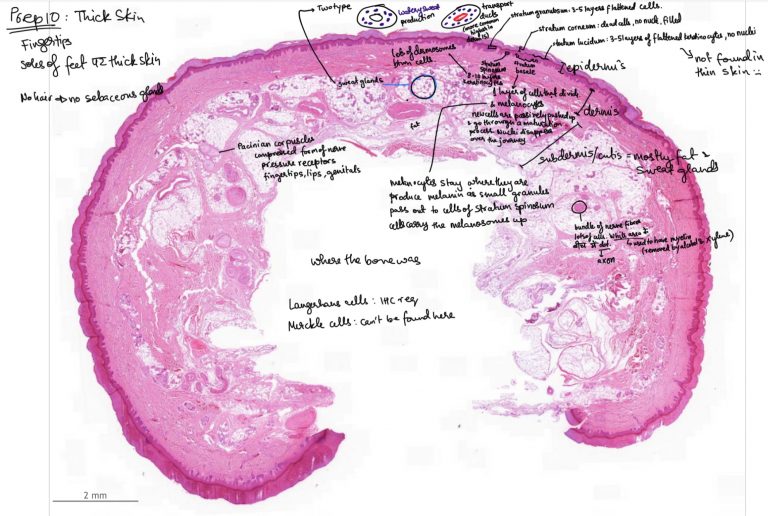 Prep 10: Thick Skin
Fingertips
Soles of feet thick skin
No hair → no sebaceous gland
Two type
watery sweat
production
transport
ducts
stratum granulosum: 3-5 layers flattened cells.
stratum corneum: dead cells, no nuclei, filled
stratum lucidum: 3-5 layers of flattened keratinocytes, no nuclei
↳ not found in
thin skin
epidermis
lots of desmosomes
btwn cells
stratum
spinosum
8-10 layers
keratinocytes
stratum
basale
sweat glands
1 layer of cells that divide
& melanocytes
new cells are passively pushed up
& go through a maturation
process. Nuclei disappear
over the journey
dermis
fat
Pacinian corpuscles
compressed form of nerve
pressure receptors
fingertips, lips, genitals
subdermis/cutis = mostly fat &
sweat glands
Melanocytes stay where they are
produce melanin as small granules
pass out to cells of stratum spinosum
cells carry the melanosomes up
bundle of nerve fibres
lots of nuclei. White area
used to have myelin
(removed by alcohol & xylene)
axon
where the bone was
Langerhans cells: IHC req
Merckle cells: can't be found here
2 mm